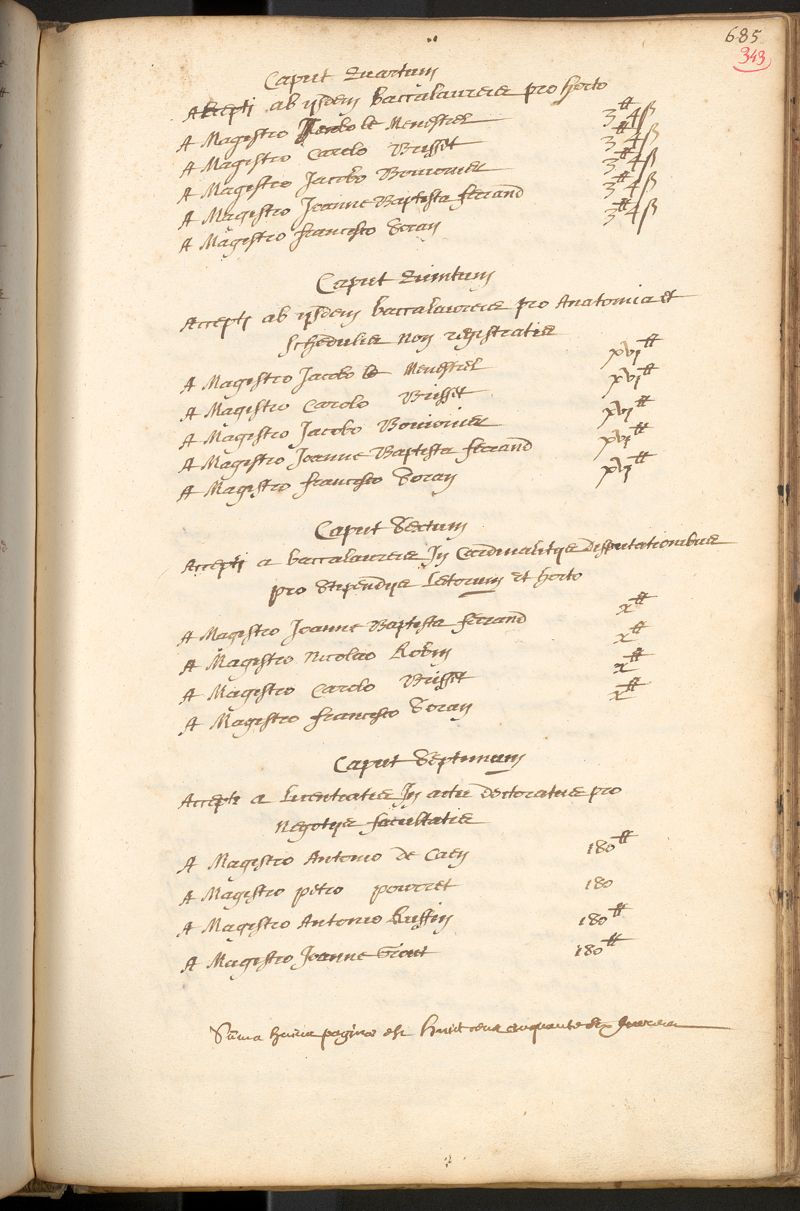 685
343
Caput Quartum
Accepti ab ijsdem baccalaureis pro horto
A Magistro Jacobo le Menestrel 3tt 4ß
A Magistro Carolo Brisset 3tt 4ß
A Magistro Jacobo Bouvvier 3tt 4ß
A Magistro Joanne Baptista ferrand 3tt 4ß
A Magistro francisco Soran 3tt 4ß
Caput Quintum
Accepti ab ijsdem baccalaureis pro Anatomia et
schedulis non registratis
A Magistro Jacobo le Menestrel xvjtt
A Magistro Carolo Brisset xvjtt
A Magistro Jacobo Bouvvier xvjtt
A Magistro Joanne Baptista ferrand xvjtt
A Magistro francisco Soran xvjtt
Caput Sextum
Accepti a baccalaureis In Cardinalitijs disputationibus
pro stipendijs Lectorum et horto
A Magistro Joanne Baptista ferrand xtt
A Magistro Nicolao Robin xtt
A Magistro Carolo Brisset xtt
A Magistro francisco Soran xtt
Caput Septimum
Accepti a Licentiatis In actu doctoratus pro
Negotijs facultatis
A Magistro Antonio de Caen 180tt
A Magistro petro pourret 180
A Magistro Antonio Ruffin 180tt
A Magistro Joanne Giout 180tt
Summa huius paginae est huict cens cinquante six